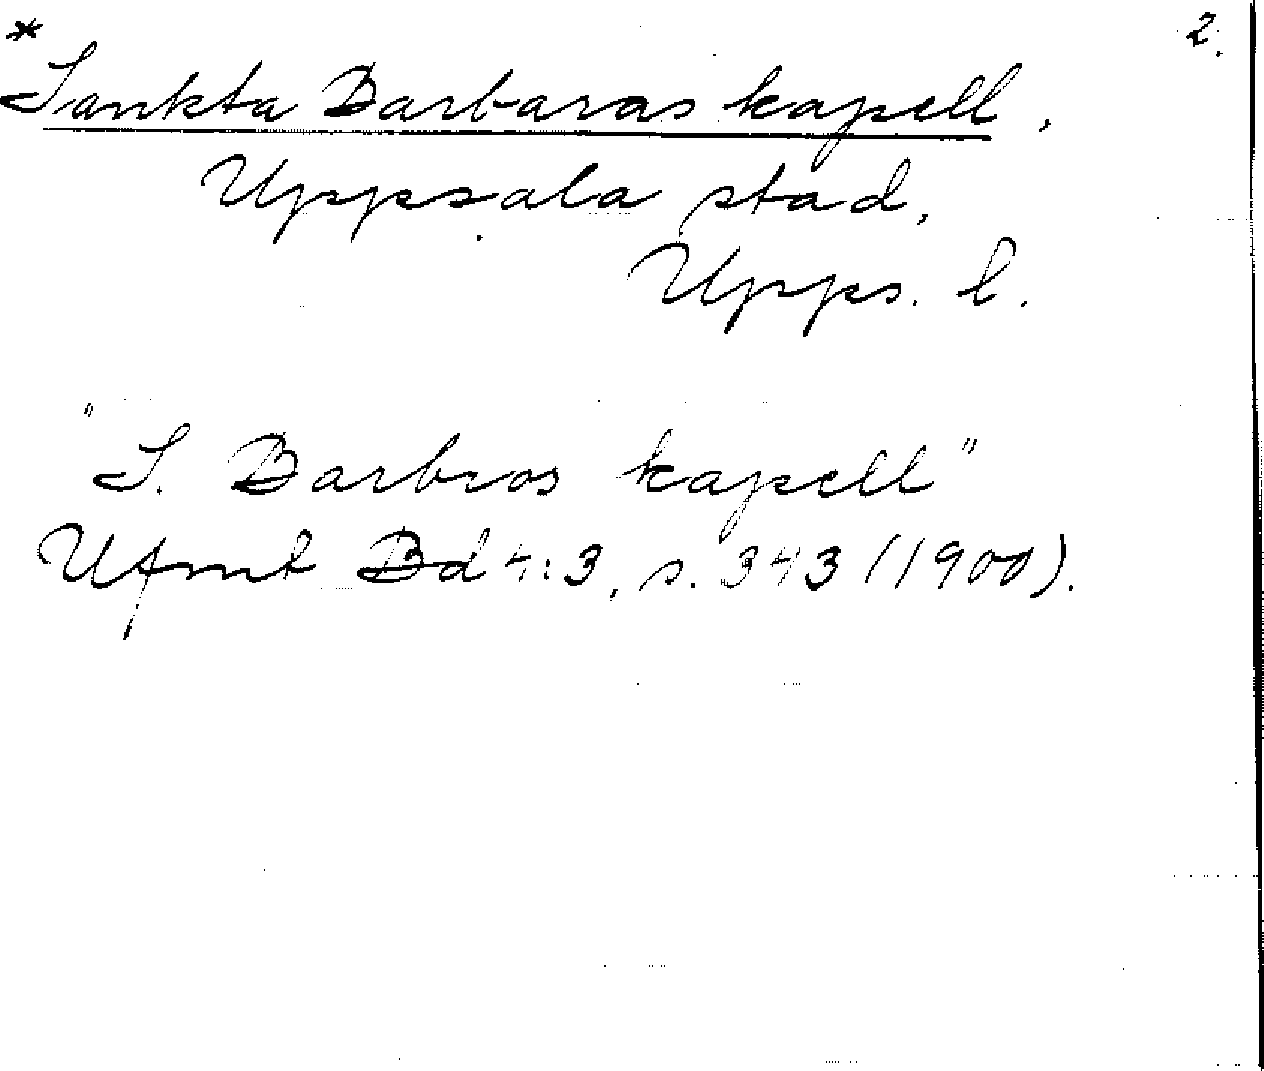 * 2.
Sankta Barbaras kapell,
Uppsala stad,
Upps. l.
"S. Barbros kapell"
Ufmt Bd 4:3, s. 343 (1900).